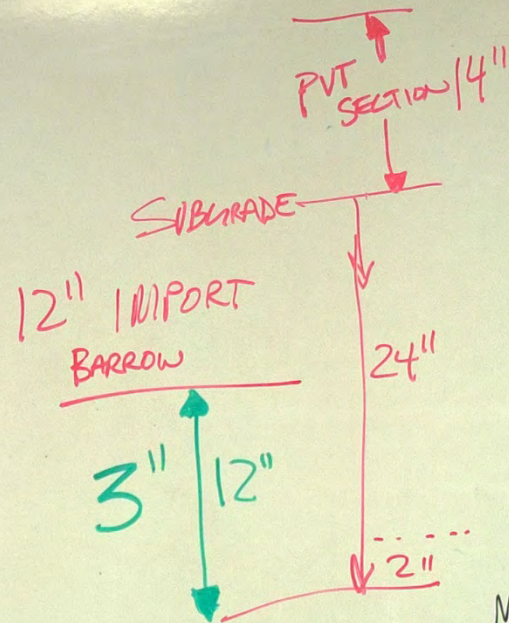 PVT
SECTION 14"
SUBGRADE
12" IMPORT
BARROW
24"
3" 12"
2"